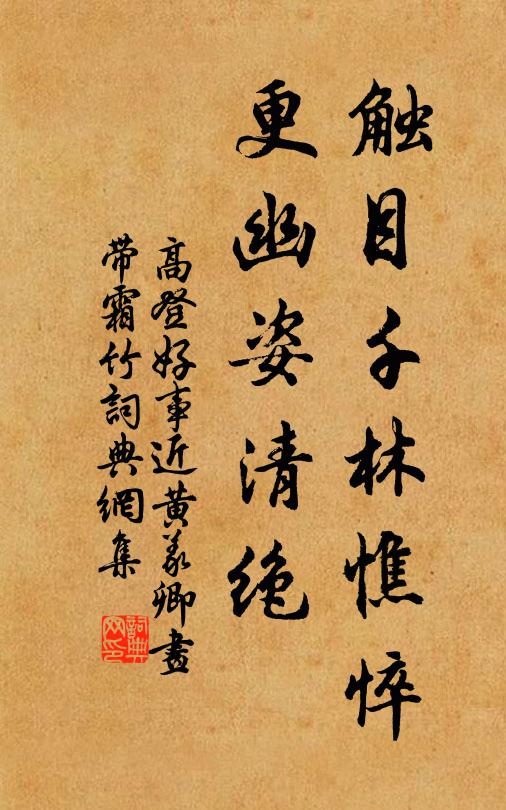 触目千林憔悴
更幽姿清绝
高登好事近黄义卿畫
带霜竹詞典網集
詞典网印